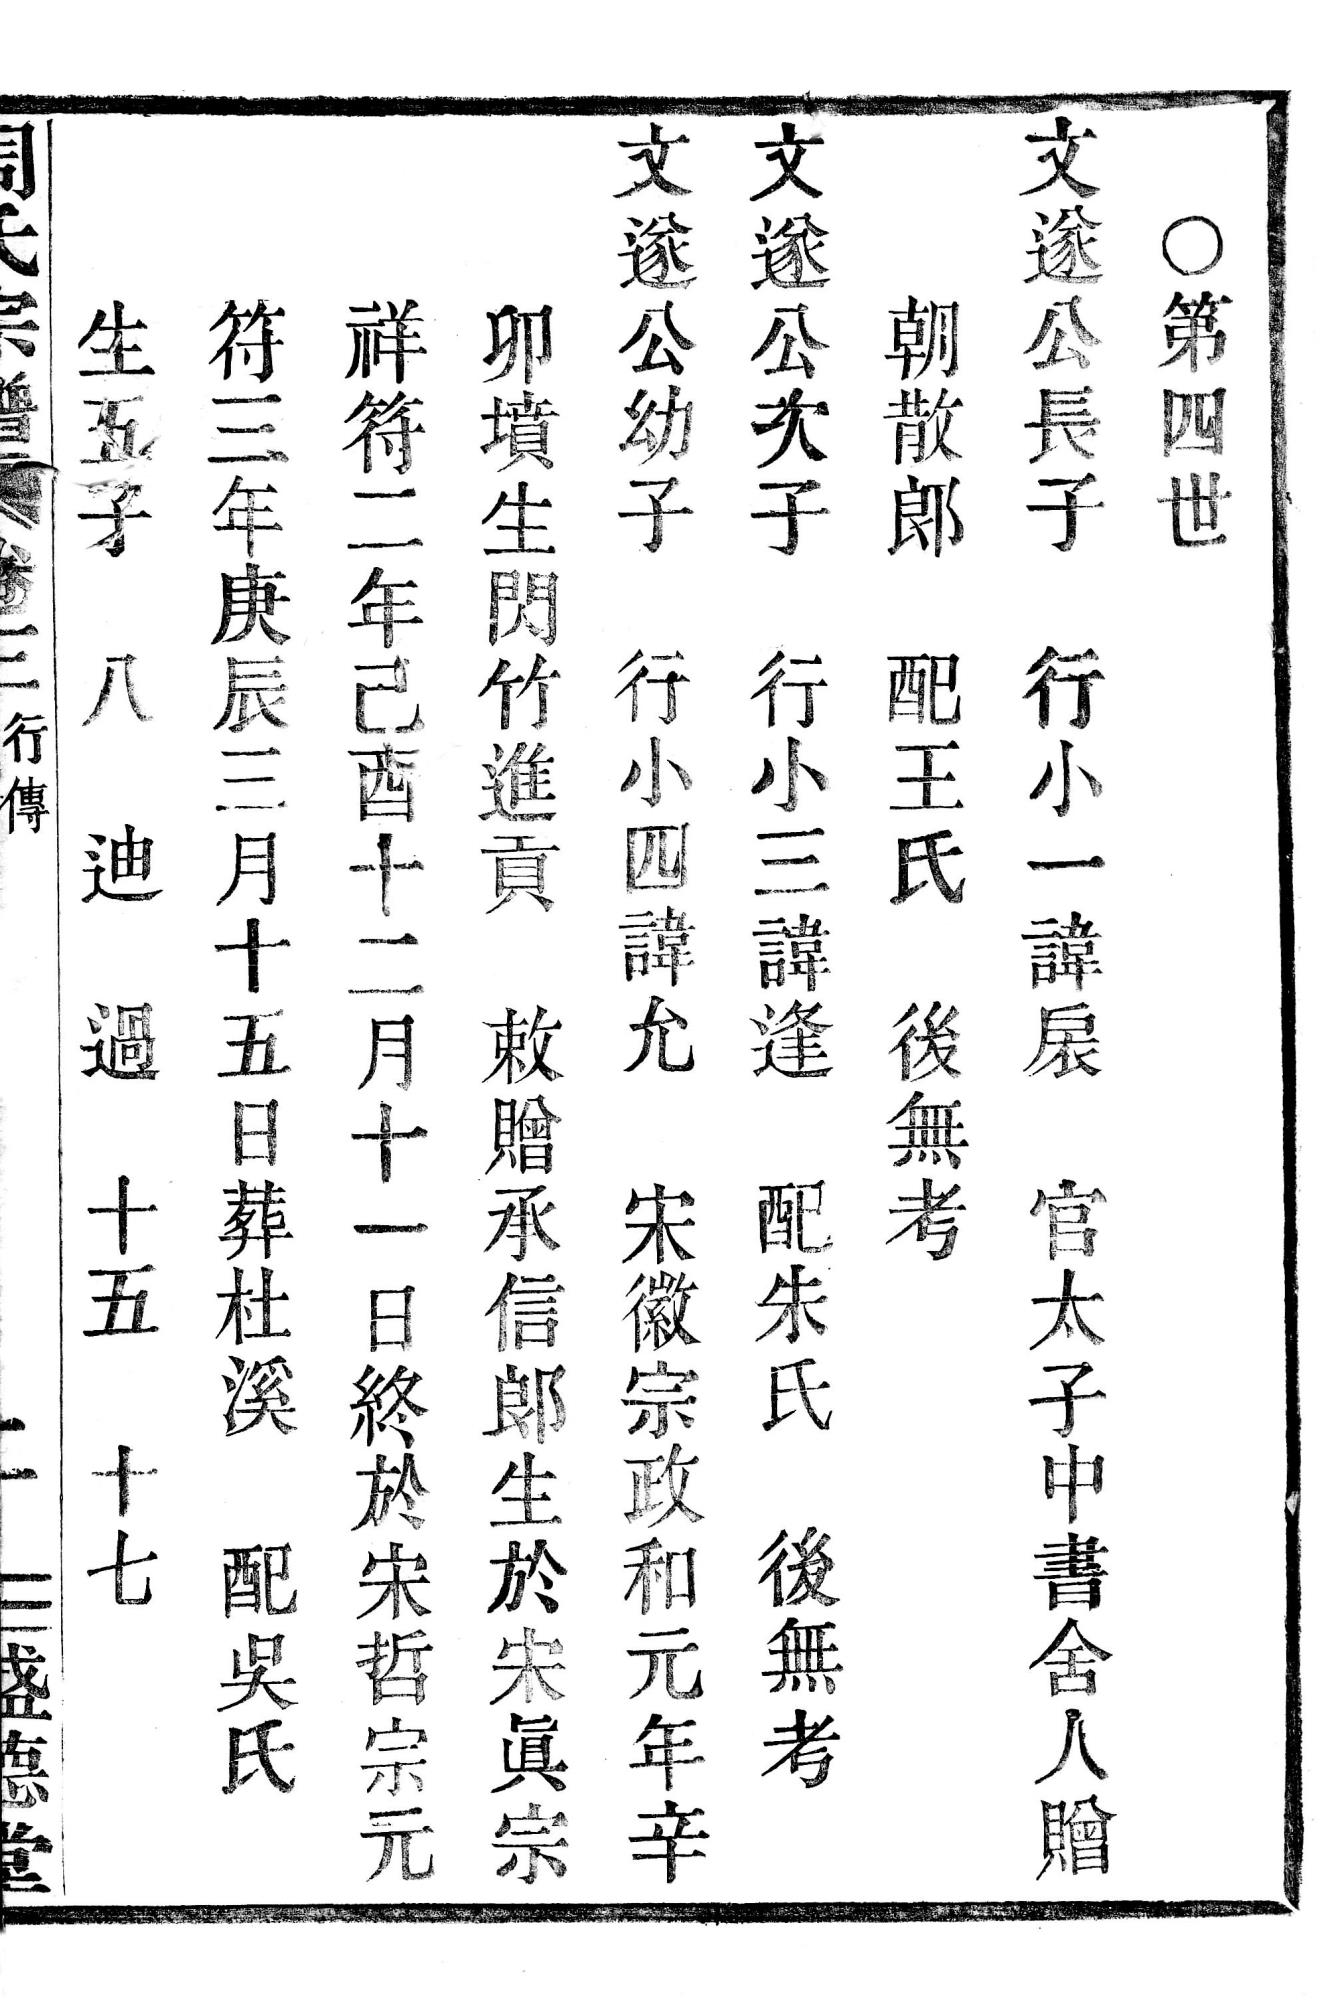 〇第四世
文遂公長子　行小一諱扆　官太子中書舍人贈
朝散郎　配王氏　後無考
文遂公次子　行小三諱逢　配朱氏　後無考
文遂公幼子　行小四諱允　宋徽宗政和元年辛
卯墳生閃竹進貢　敕贈承信郎生於宋眞宗
祥符二年己酉十二月十一日終於宋哲宗元
符三年庚辰三月十五日葬杜溪　配吳氏
生五子　八　迪　過　十五　十七
周氏宗譜　卷三　行傳　盛德堂